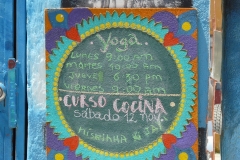 Yoga
Lunes 9:00 am
martes 10:00 am
Jueves 6:30 pm
viernes 9:00 am
CURSO COCINA
sabado 12 nov.